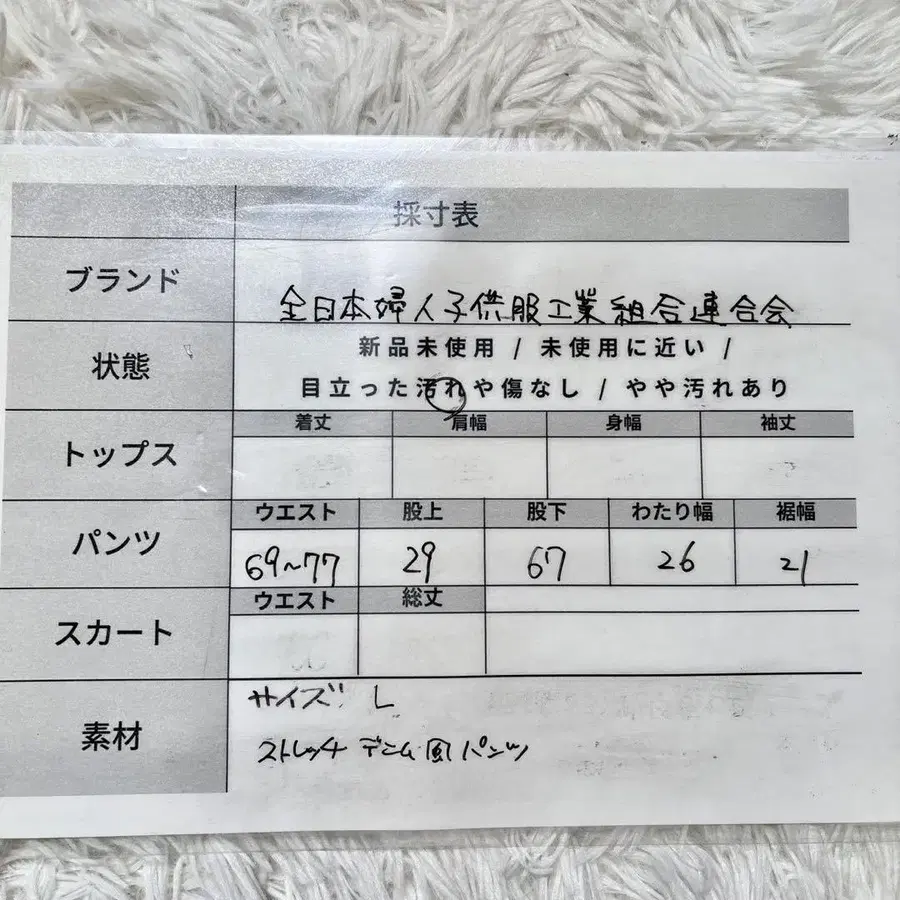 採寸表
ブランド
全日本婦人子供服工業組合連合会
状態
新品未使用 / 未使用に近い /
目立った汚れや傷なし / やや汚れあり
トップス
着丈 肩幅 身幅 袖丈
パンツ
ウエスト 股上 股下 わたり幅 裾幅
69~77 29 67 26 21
スカート
ウエスト 総丈
素材
サイズ: L
ストレッチ デニム風パンツ